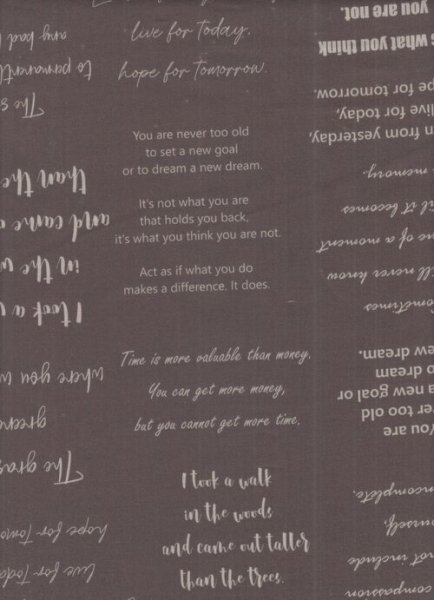 live for today.
hope for tomorrow.
You are never too old
to set a new goal
or to dream a new dream.
It's not what you are
that holds you back,
it's what you think you are not.
Act as if what you do
makes a difference. It does.
Time is more valuable than money.
You can get more money,
but you cannot get more time.
I took a walk
in the woods
and came out taller
than the trees.
live for toda
hope for tomo
The gras
greene
where you w
I took a w
in the w
and came o
than the
The s
to permanentl
any bad h
compassion
not include
yourself,
incomplete.
You are
ver too old
a new goal or
o dream
ew dream.
Sometimes
ill never know
ue of a moment
til it becomes
a memory.
n from yesterday,
live for today,
pe for tomorrow
s what you think
you are not.